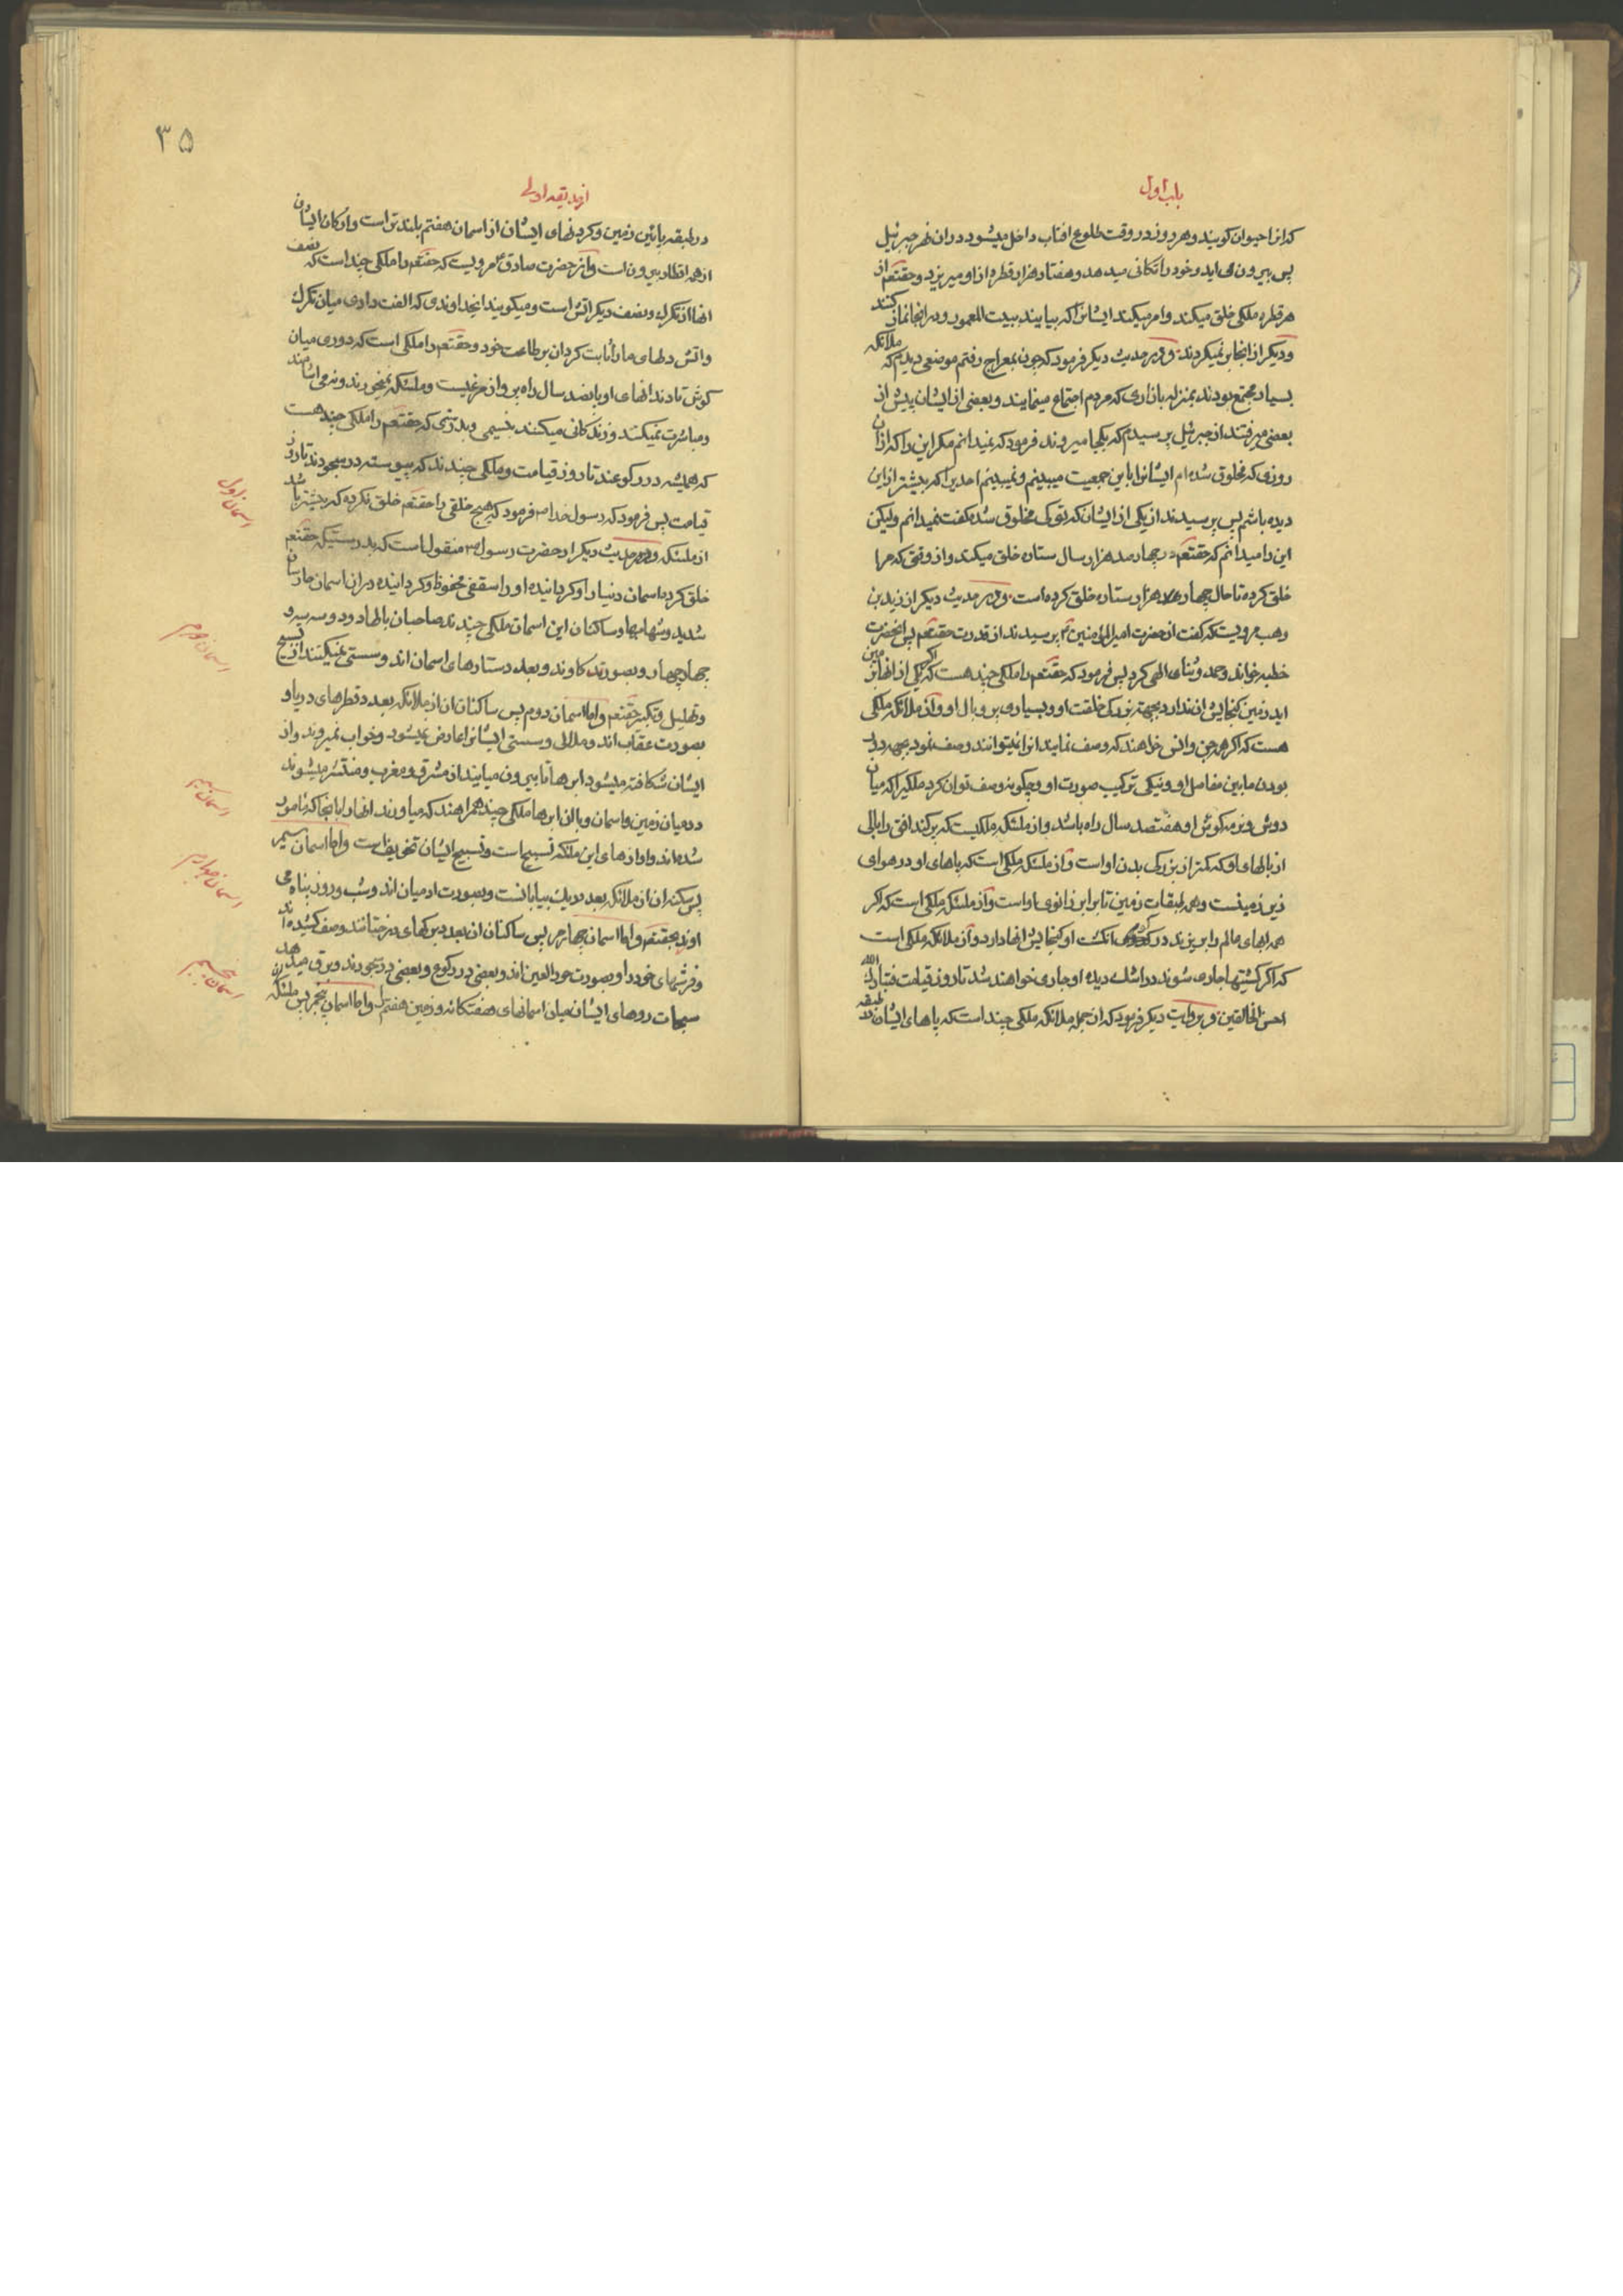 باب اول
که انرا حیوان کویند و هر روز در وقت طلوع افتاب داخل میشود در ان نهر جبرئیل
پس بیرون می اید و خود را تکانی میدهد و هفتاد هزار قطره از او میریزد و حقتعم از
هر قطره ملکی خلق میکند و امر میکند ایشانرا که بیایند ببیت المعمور و در انجا نماز کنند
و دیکر از انجا بر نمیکردند و در حدیث دیکر فرمود که چون بمعراج رفتم موضعی دیدم که ملائکه
بسیار مجتمع بودند بمنزله بازاری که مردم اجتماع مینمایند و بعضی از ایشان پیش از
بعضی میرفتند از جبرئیل پرسیدم که بکجا میروند فرمود که نمیدانم مکر این را که از ان
روزی که مخلوق شده ام ایشانرا باین جمعیت میبینم و نمیبینم احدیرا که پیشتر از این
دیده باشم پس پرسیدند از یکی از ایشان که تو کی مخلوق شدی کفت نمیدانم ولیکن
این را میدانم که حقتعم در چهار صد هزار سال ستاره خلق میکند و از وقتی که مرا
خلق کرده تا حال چهار صد هزار ستاره خلق کرده است و در حدیث دیکر از زید بن
وهب مرویست که کفت از حضرت امیرالمؤمنین ع پرسیدند از قدرت حقتعم پس انحضرت
خطبه خواند و حمد و ثنای الهی کرد پس فرمود که حقتعم را ملکی چند هست که اکر یکی از انها بزمین
اید زمین کنجایش ان ندارد بجهة بزرکی خلقت او و بسیاری پر و بال او و از ملائکه ملکی
هست که اکر همه جن و انس خواهند که وصف نمایند انرا نمیتوانند وصف نمود بجهة دور
بودن مابین مفاصل او و نیکی ترکیب صورت او و چکونه وصف توان کرد ملکیرا که میان
دوش و نرمه کوش او هفتصد سال راه باشد و از ملئکه ملکیست که پر کند افق را ببالی
از بالهای او که کمتر از بزرکی بدن او است و از ملئکه ملکی است که پاهای او در هوای
زیر زمینست و همه طبقات زمین تا برابر زانوی او است و از ملئکه ملکی است که اکر
همه ابهای عالم را بریزند در کودی انکشت او کنجایش انها دارد و از ملائکه ملکی است
که اکر کشتیها جاری شوند در اشک دیده او جاری خواهند شد تا روز قیامت فتبارک الله
احسن الخالقین و بروایت دیکر فرمود که از جمله ملائکه ملکی چند است که پاهای ایشان در طبقه
۳۵
از حدیقه اولی
در طبقه پائین زمین و کردنهای ایشان از اسمان هفتم بلند تر است و ارکان ایشان
از همه اقطار بیرون است و از حضرت صادق ع مرویست که حقتعم را ملکی چند است که نصف
انها از تکرک و نصف دیکر اتش است و میکویند ایخداوندی که الفت دادی میان تکرک
و اتش دلهای ما را ثابت کردان بر طاعت خود و حقتعم را ملکی است که دوری میان
کوش تا دندانهای او پانصد سال راه پرواز مرغیست و ملئکه نمیخورند و نمی اشامند
و مباشرت نمیکنند و زندکانی میکنند بنسیمی و بدرستی که حقتعم را ملکی چند هست
که همیشه در رکوعند تا روز قیامت و ملکی چندند که پیوسته در سجودند تا روز
قیامت پس فرمود که رسول خدا ص فرمود که هیچ خلقی را حقتعم خلق نکرده که بیشتر باشد
از ملئکه و در حدیث دیکر از حضرت رسول ص منقول است که بدرستیکه حقتعم
خلق کرد اسمان دنیا را و کردانیده او را سقفی محفوظ و کردانیده در ان اسمان حارسان
شدید و شهابها و ساکنان این اسمان ملکی چندند صاحبان بالها دو دو و سه سه و
چهار چهار و بصورتی کاوند و بعدد ستارهای اسمان اند و سستی نمیکنند از تسبیح
و تهلیل و تکبیر حقتعم و اما اسمان دوم پس ساکنان ان از ملائکه بعدد قطرهای دریا و
بصورت عقاب اند و ملالی و سستی ایشانرا عارض نمیشود و خواب نمیروند و از
ایشان شکافته میشود ابرها تا بیرون میایند از مشرق و مغرب و منتشر میشوند
در میان زمین و اسمان و با ان ابرها ملکی چند همراهند که میاورند انها را بانجا که مامور
شده اند و اوازهای این ملئکه تسبیح است و تسبیح ایشان تخویف است و اما اسمان سیم
پس سکنه ان از ملائکه بعدد ریک بیابانست و بصورت ادمیان اند و شب و روز پناه می
اورند بحقتعم و اما اسمان چهارم پس ساکنان ان بعدد برکهای درختانند و صف کشیده اند
و فرشهای خود را و بصورت حور العین اند و بعضی در رکوع و بعضی در سجودند و برق میدهد
سبحات روهای ایشان میان اسمانهای هفتکانه و زمین هفتم را و اما اسمان پنجم پس ملئکه ان
اسمان اول
اسمان دوم
اسمان سیم
اسمان چهارم
اسمان پنجم